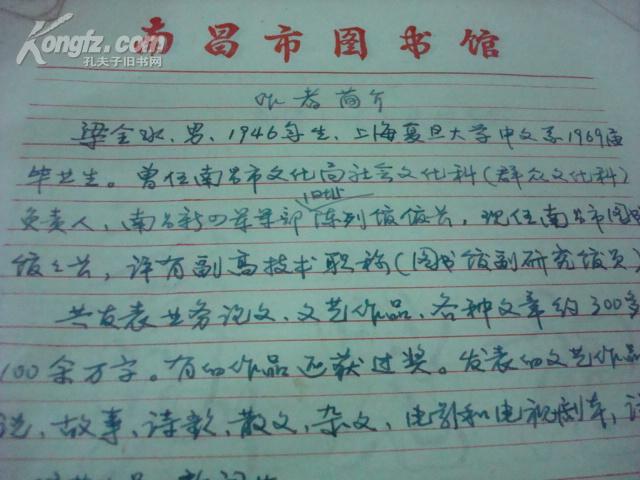 Kongfz.com
孔夫子旧书网
南昌市图书馆
作者简介
梁金水、男、1946年生、上海复旦大学中文系1969届
毕业生。曾任南昌市文化局社会文化科(群众文化科)
负责人,南昌新四军军部旧址陈列馆馆长,现任南昌市图书
馆馆长,评有副高技术职称(图书馆副研究馆员)
共发表业务论文、文艺作品、各种文章约300多
100余万字。有的作品还获过奖。发表的文艺作品
说、故事、诗歌、散文、杂文、电影和电视剧本,